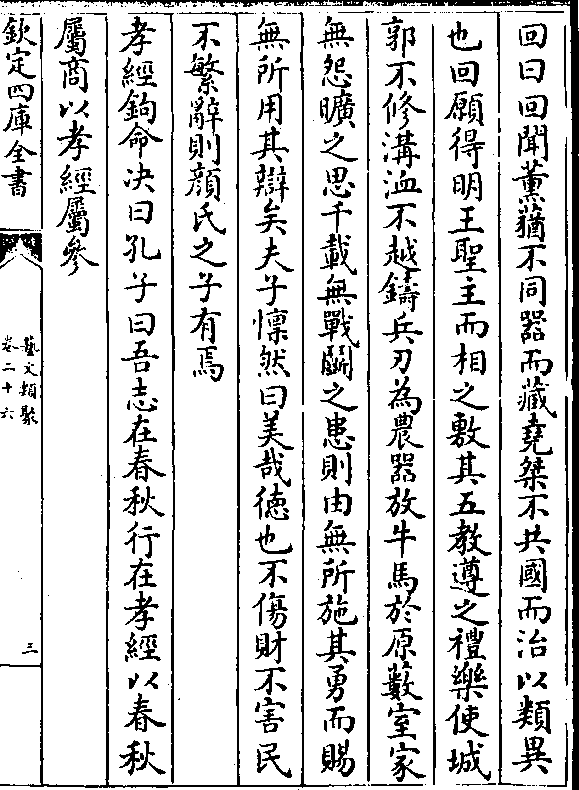 回曰回聞薫蕕不同器而藏堯桀不共國而治以類異
也回願得明王聖主而相之敷其五教遵之禮樂使城
郭不修溝洫不越鑄兵刃為農器放牛馬於原藪室家
無怨曠之思千載無戰鬭之患則由無所施其勇而賜
無所用其辯矣夫子懍然曰美哉徳也不傷財不害民
不繁辭則顔氏之子有焉
孝經鉤命决曰孔子曰吾志在春秋行在孝經以春秋
屬商以孝經屬參
欽定四庫全書
藝文類聚
卷二十六
三